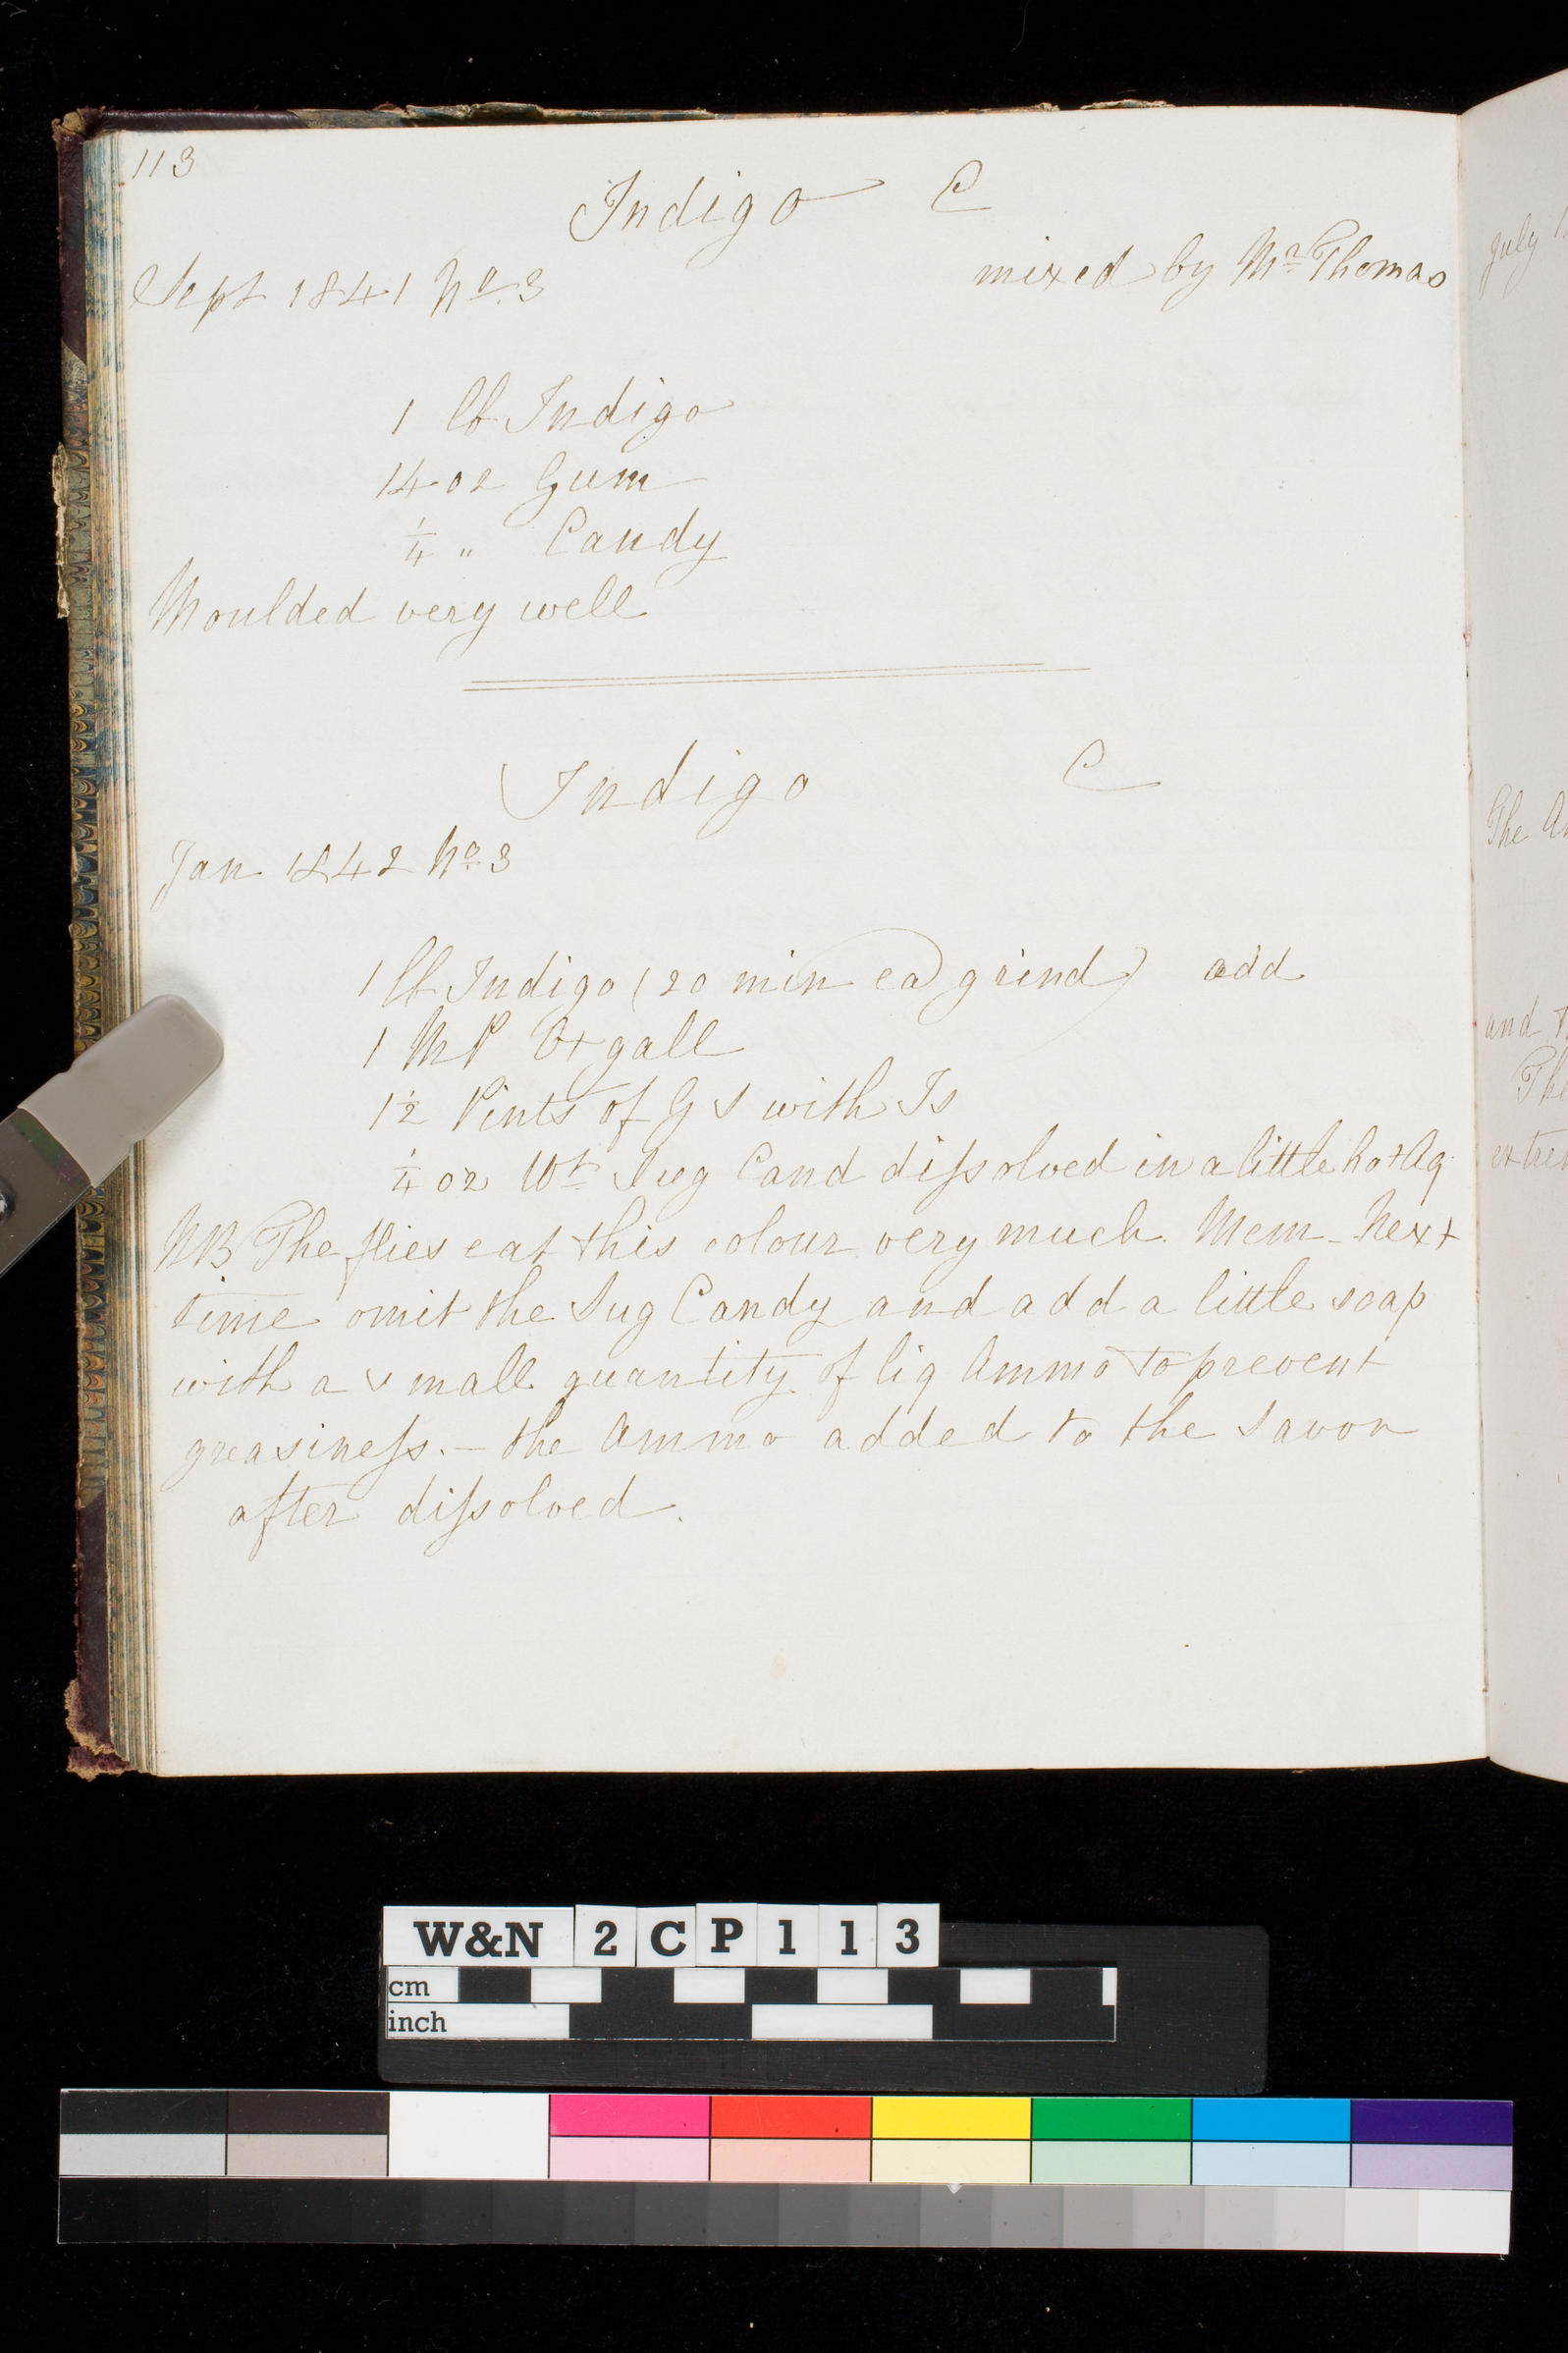 113
Indigo C
Sept 1841 No. 3 mixed by Mr Thomas
1 lb Indigo
14 oz Gum
1/4 " Candy
Moulded very well
Indigo C
Jan 1842 No 3
1 lb Indigo (20 min ea grind) add
1 MP Ox gall
1 1/2 Pints of G S with Is
1/4 oz Wt Sug Cand dissolved in a little hot Aq
NB The flies eat this colour very much. Mem - Next
time omit the Sug Candy and add a little soap
with a small quantity of liq Ammo to prevent
greasiness. - the Ammo added to the Savon
after dissolved.
July
The
and
The
W&N 2CP113
cm
inch